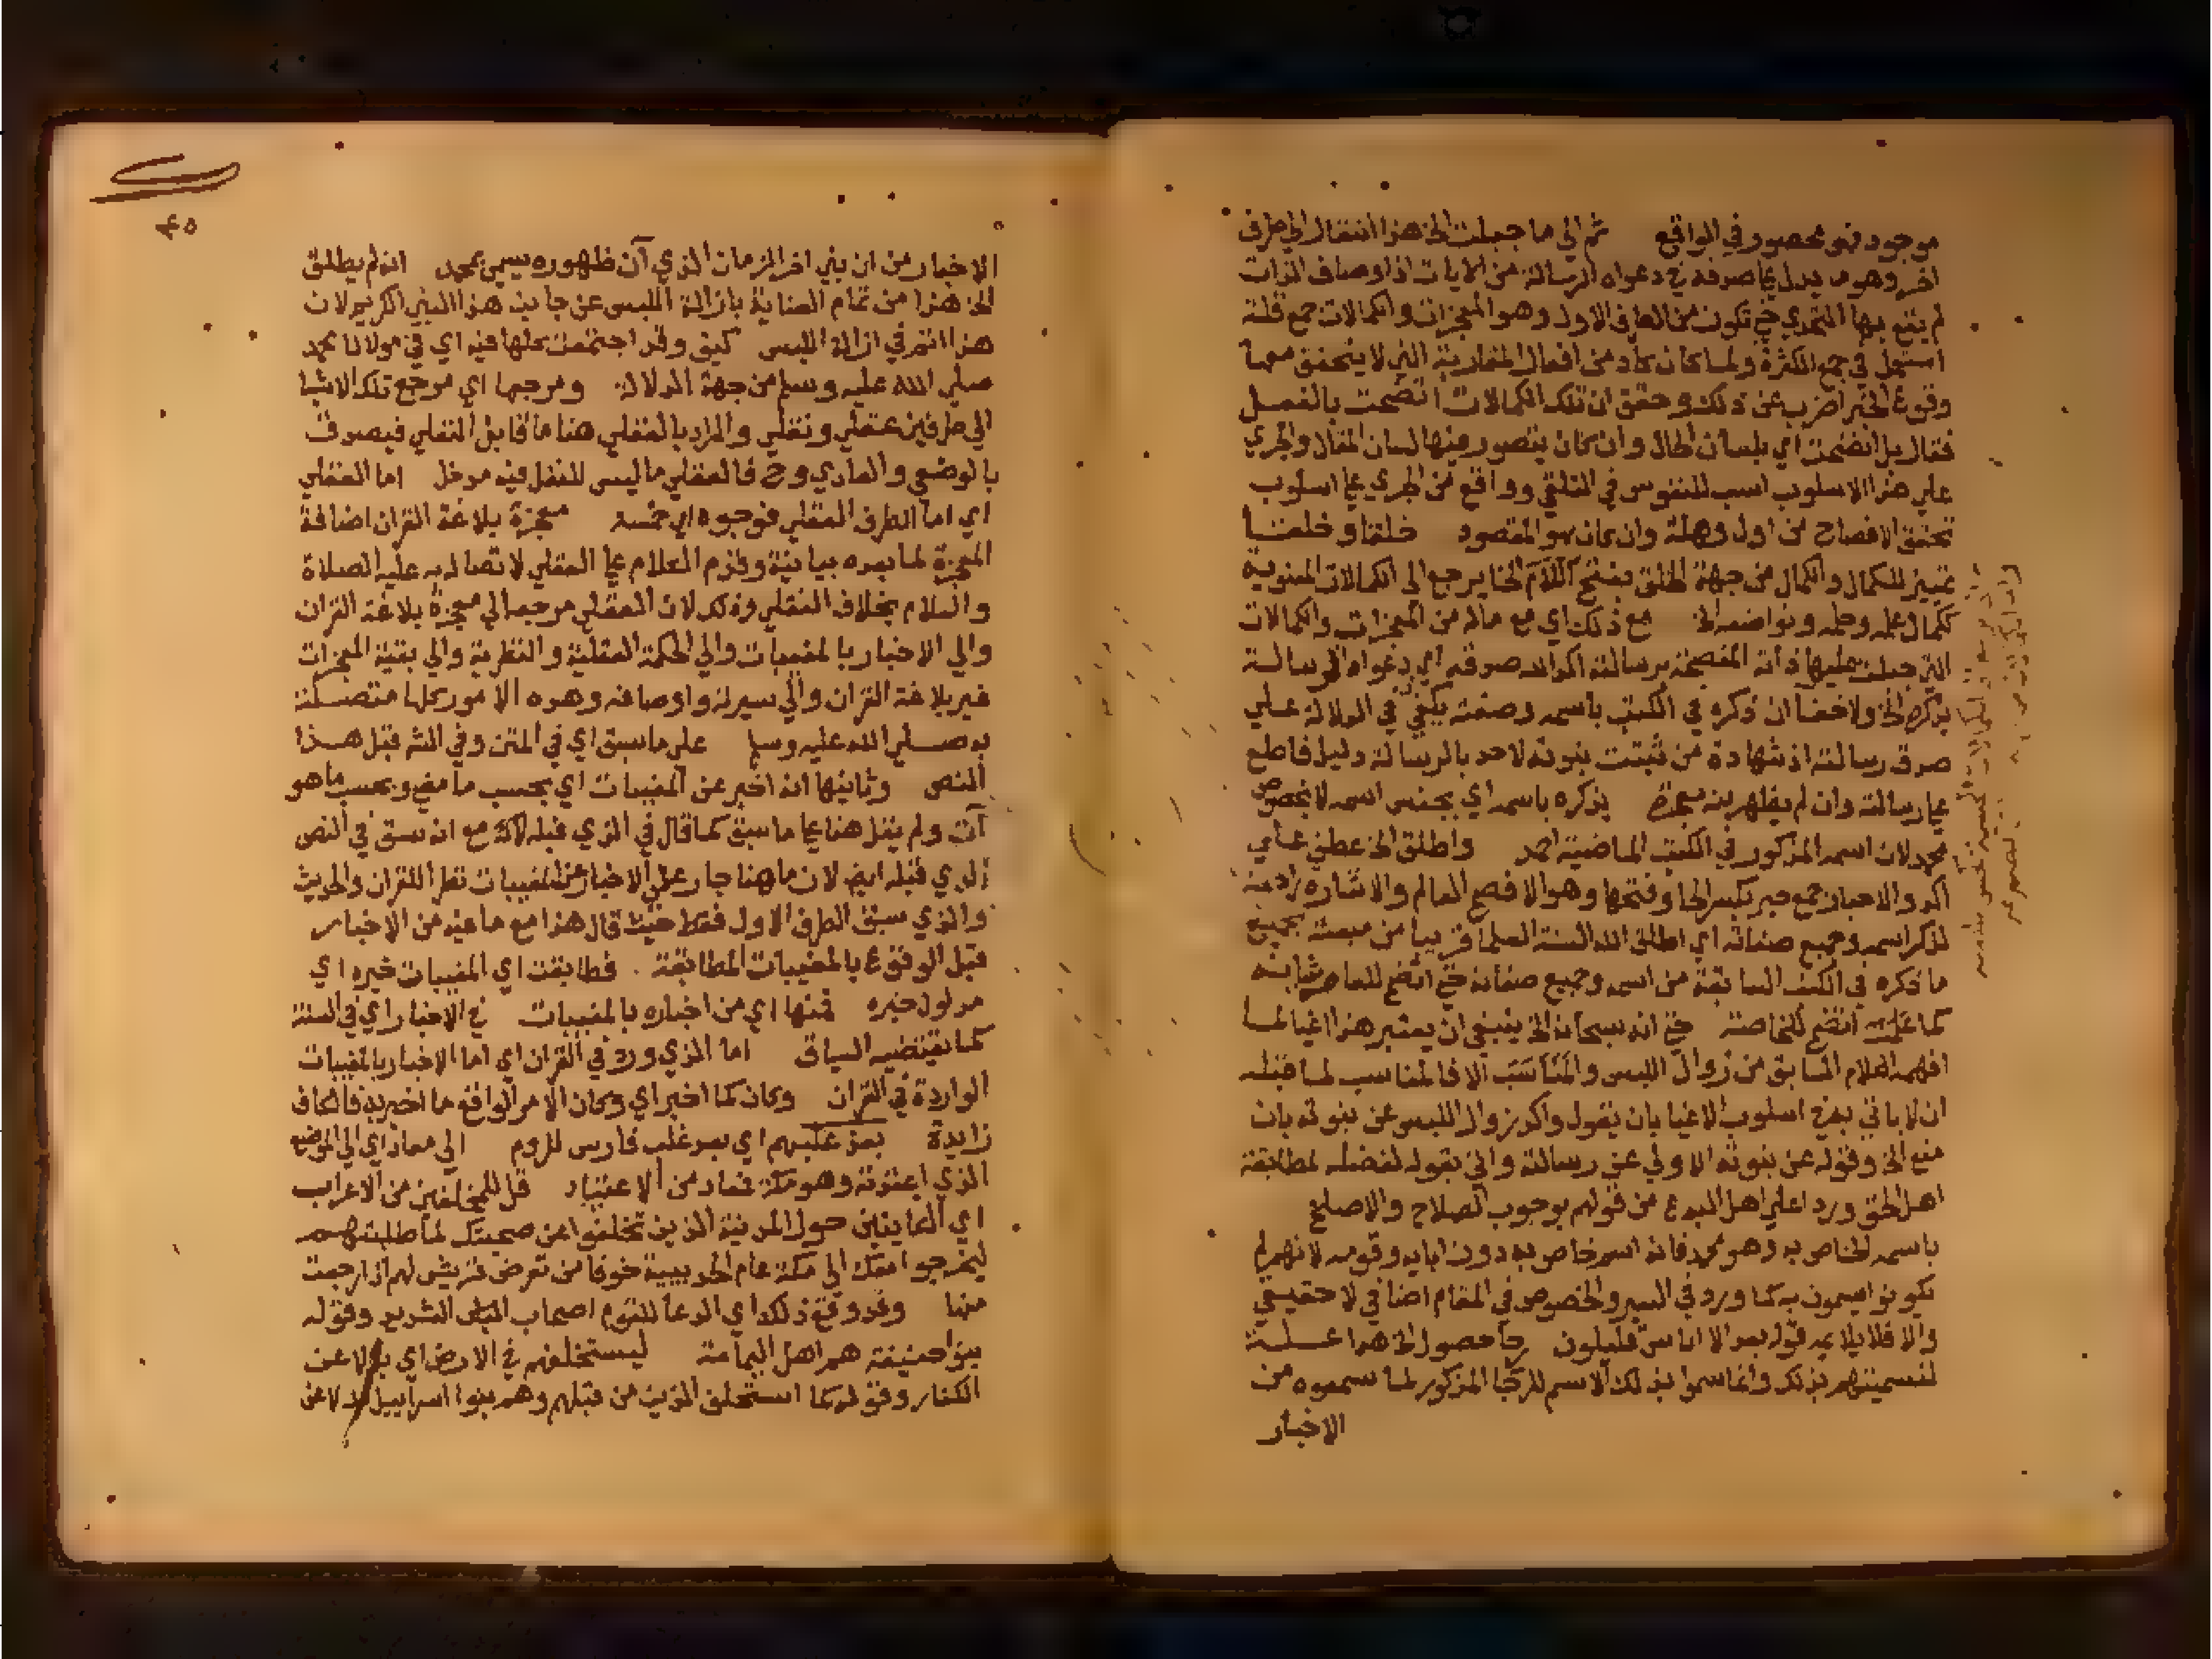 موجود فهو محصور في الواقع ثم الى ما جبلت الخ هذا انتقال الى طرف
اخر وهو ما يدل على صدقه في دعواه الرسالة من الايات اذ اوصاف الذات
لم يقع بها التحدي حتى تكون من الطرف الاول وهو المعجزات والكمالات جمع قلة
استعمل في جمع الكثرة ولما كان كاد من افعال المقاربة التي لا يتحقق معها
وقوع الخبر اضرب عن ذلك وحقق ان تلك الكمالات افصحت بالفعل
فقال بل افصحت اي بلسان الحال وان كان يتصور منها لسان المقال والجري
على هذا الاسلوب انسب للنفوس في التلقي وواقع من الجري على اسلوب
تحقق الافصاح من اول وهلة وان كان هو المقصود خلقا وخلقا
تمييز للكمال والكمال من جهة الخلق بفتح اللام الخ يرجع الى الكمالات المعنوية
ككمال علمه وحلمه وتواضعه الخ مع ذلك اي مع ماله من المعجزات والكمالات
التي جبلت عليها ذاته المفصحة برسالته اكد الله صدقه اي دعواه الرسالة
بذكره الخ ولا خفا ان ذكره في الكتب باسمه وصفته يكفي في الدلالة على
صدق رسالته اذ شهادة من ثبتت نبوته لاحد بالرسالة دليل قاطع
على رسالته وان لم يظهر منه معجزة بذكره باسمه اي بجنس اسمه لا بخصوص
محمد لان اسمه المذكور في الكتب الماضية احمد واطلق الخ عطف على
اكد والاحبار جمع حبر بكسر الحا وفتحها وهو الافصح العالم والاشارة
لذكر اسمه وجميع صفاته اي اطلق الله السنة العلما قريبا من مبعثه بجميع
ما ذكره في الكتب السابقة من اسمه وجميع صفاته حتى اتضح للعامة شانه
كما اتضح للخاصة حتى انه سبحانه الخ ينبغي ان يعتبر هذا اغيا لما
افهمه الكلام السابق من زوال اللبس والمناسب الا فالمناسب لما قبله
ان لا ياتي بهذا اسلوب الاغيا بان يقول واكد زوال اللبس عن نبوته بان
منع الخ وقوله عن نبوته الاولى عن رسالته واتى بقوله لفضله لمطابقة
اهل الحق وردا على اهل البدع من قولهم بوجوب الصلاح والاصلح
باسمه الخاص به وهو محمد فانه اسم خاص به دون ابايه وقومه لانهم لم
يكونوا يسمون به كما ورد في السير والخصوص في المقام اضافي لا حقيقي
والا فلا يلايمه قوله بعد الا اناس قليلون رجا حصول الخ هذا علة
لتسميتهم بذلك وانما سموا بذلك الاسم للرجا المذكور لما سمعوه من
الاخبار
٤٥
الاخبار من ان نبي اخر الزمان الذي آن ظهوره سيسمى بمحمد انه لم يطلق
الخ هذا من تمام العناية بازالة اللبس عن جانب هذا النبي الكريم لان
هذا اتم في ازالة اللبس كيف وقد اجتمعت كلها فيه اي في مولانا محمد
صلى الله عليه وسلم من جهة الدلالة ومرجعها اي مرجع تلك الاشيا
الى طرفين عقلي ونقلي والمراد بالعقلي هنا ما قابل النقلي فيصدق
بالوضعي والعادي وح فالعقلي ما ليس للنقل فيه مدخل اما العقلي
اي اما الطرف العقلي فوجوه اي خمسة معجزة بلاغة القران اضافة
المعجزة لما بعده بيانية وقدم الكلام على العقلي لاتصاله به عليه الصلاة
والسلام بخلاف النقلي وذلك لان العقلي مرجعه الى معجزة بلاغة القران
والى الاخبار بالمغيبات والى الحكمة العقلية والنظرية والى بقية المعجزات
غير بلاغة القران والى سيرته واوصافه وهذه الامور كلها متصلة
به صلى الله عليه وسلم على ما سبق اي في المتن وفي الشر قبل هذا
النص وثانيها انه اخبر عن المغيبات اي بحسب ما مضى وبحسب ما هو
آت ولم يقل هنا على ما سبق كما قال في الذي قبله مع انه سبق في النص
الذي قبله ايضا لان ما هنا جار على الاخبار عن المغيبات نقل القران والحديث
والذي سبق الطرف الاول فقط حيث قال هذا مع ما فيه من الاخبار
قبل الوقوع بالمغيبات المطابقة فطابقت اي المغيبات خبره اي
مدلول خبره فمنها اي من اخباره بالمغيبات في الاخبار اي في السنة
كما يقتضيه السياق اما الذي ورد في القران اي اما الاخبار بالمغيبات
الواردة في القران وكان كما اخبر اي وكان الامر الواقع ما اخبر به فالكاف
زايدة بعد غلبهم اي بعد غلب فارس للروم الى معاد اي الى الموضع
الذي اعتدته وهو مكة فمعاد من الاعتياد قل للمخلفين من الاعراب
اي الكاينين حول المدينة الذين تخلفوا عن صحبتك لما طلبتهم
ليخرجوا معك الى مكة عام الحديبية خوفا من تعرض قريش لهم اذا رجعت
منها وقد وقع ذلك اي الدعا للقوم اصحاب الباس الشديد وقوله
بنو حنيفة هم اهل اليمامة ليستخلفنهم في الارض اي بدلا عن
الكفار وقوله كما استخلف الذين من قبلهم وهم بنوا اسراييل بدلا عن